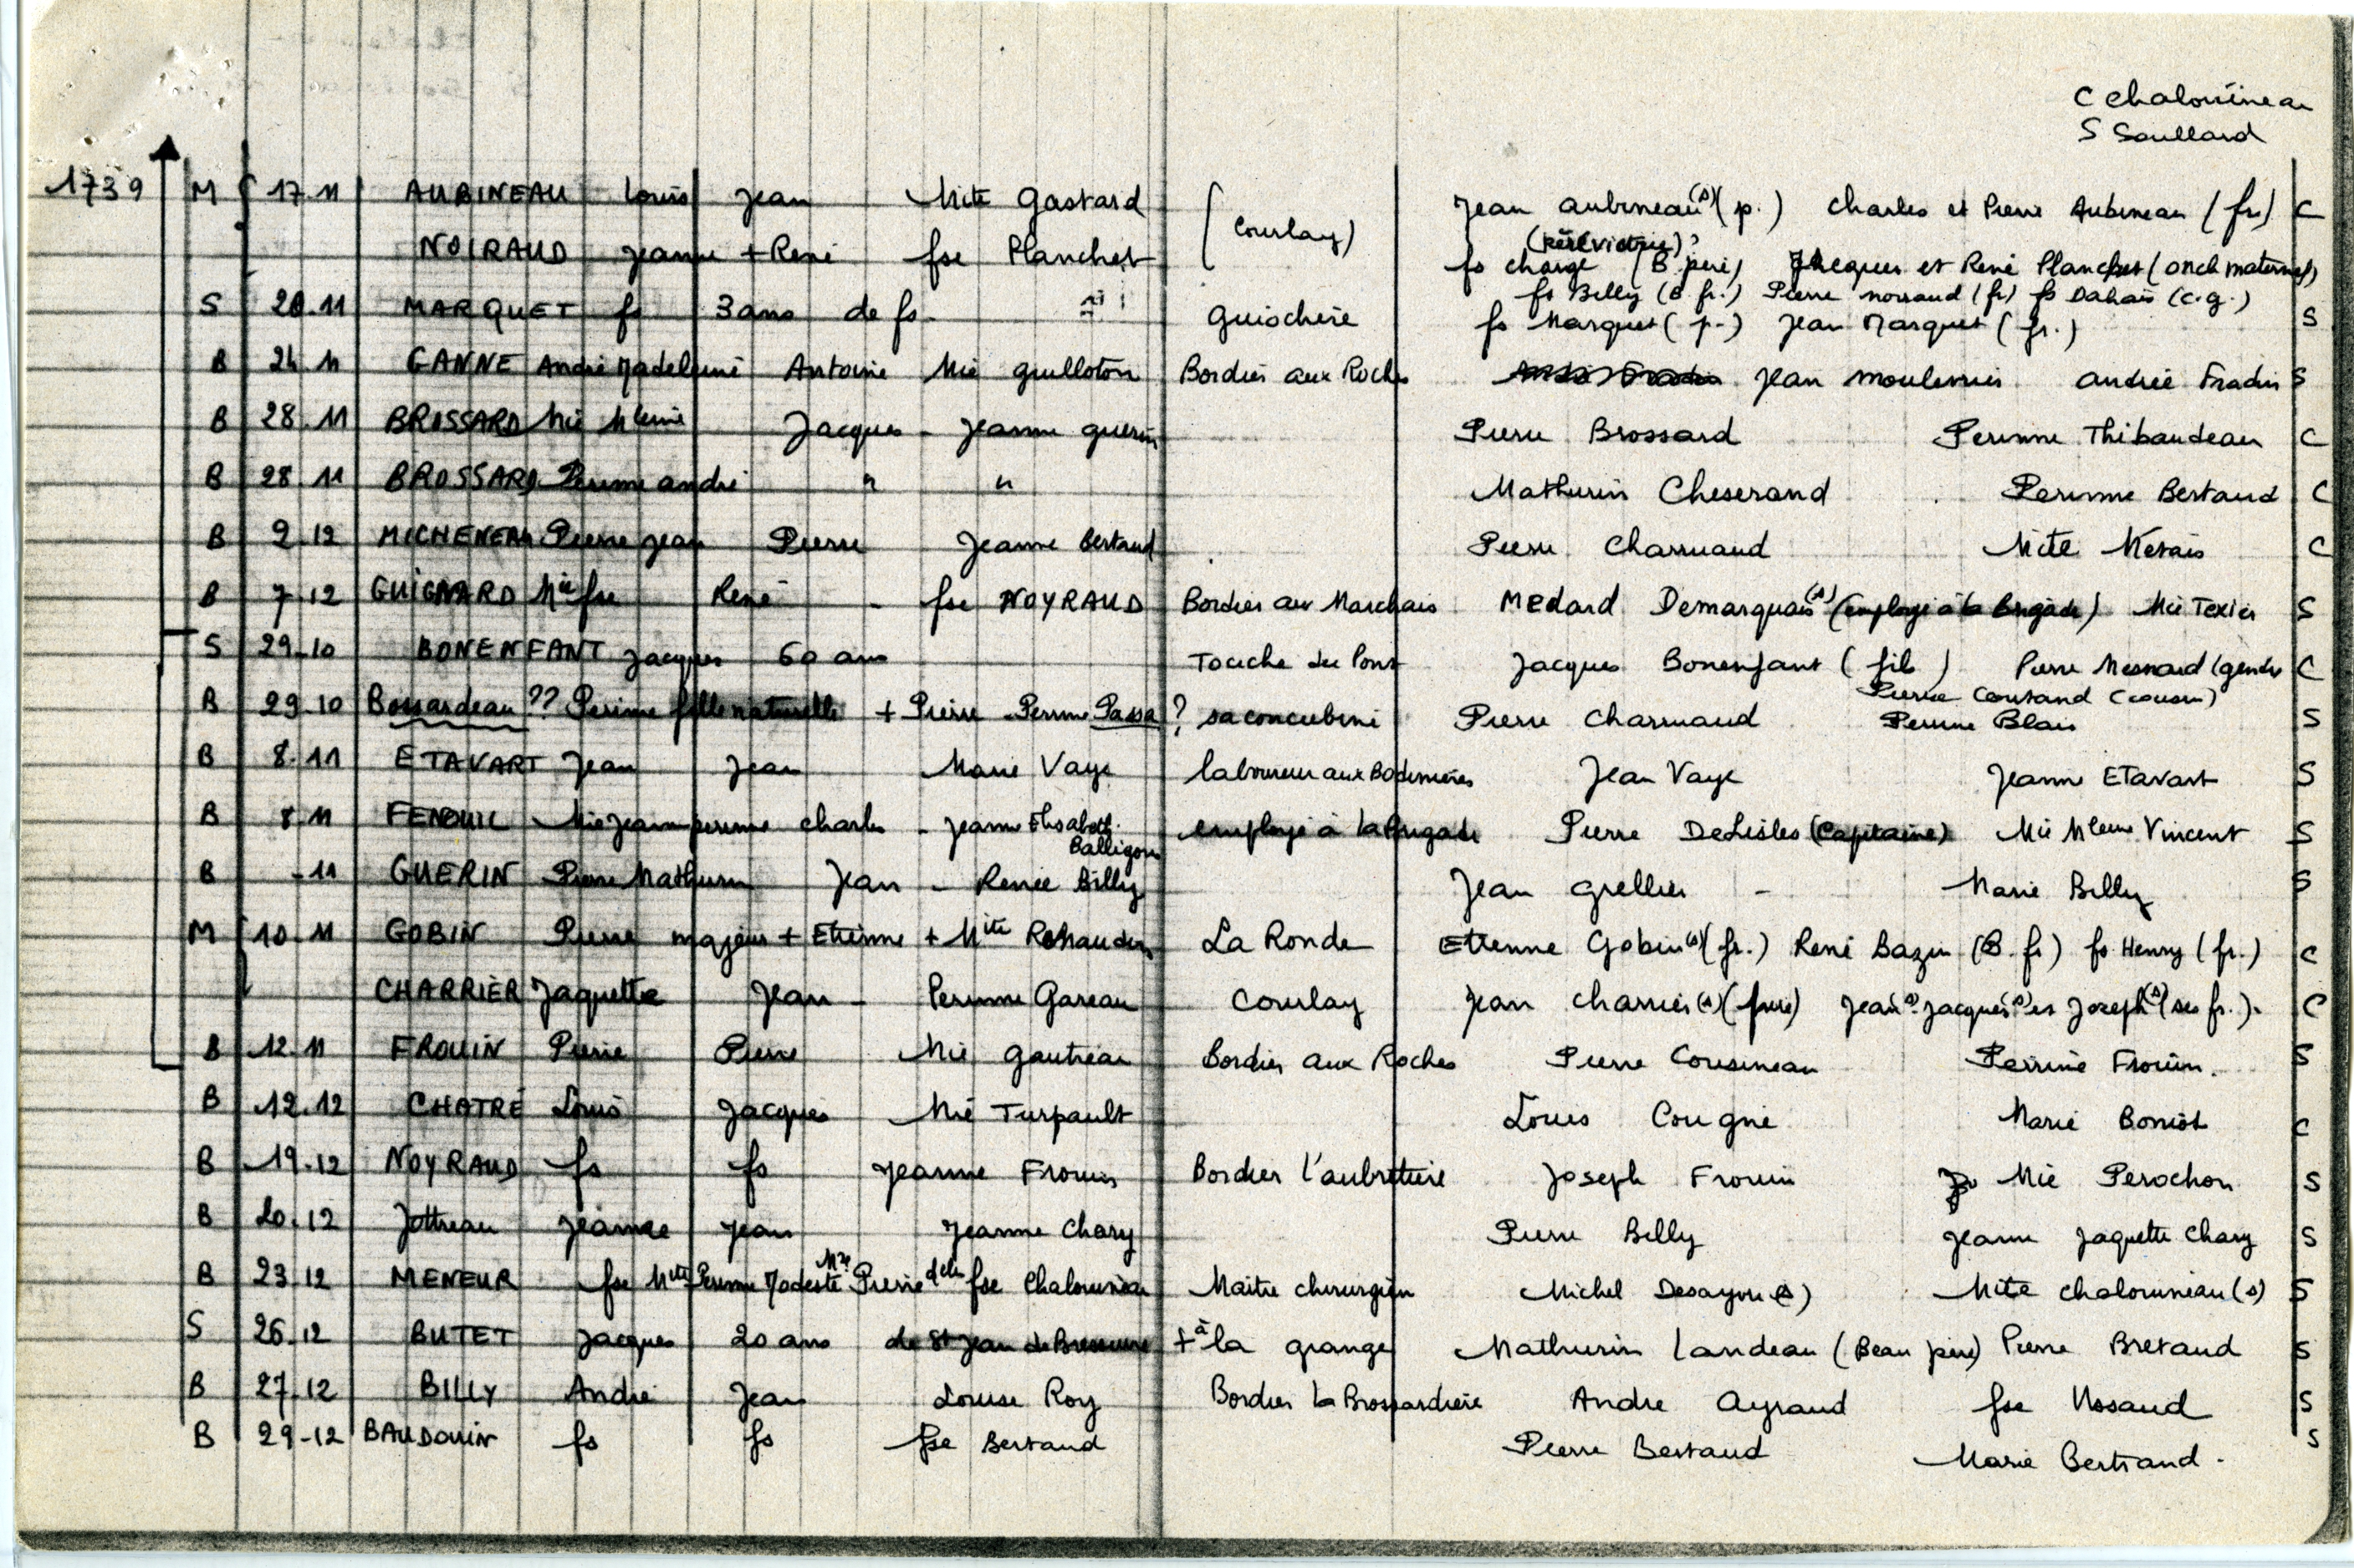 C Chalouineau
S Soullard
1739 M 17.11 AUBINEAU Louis Jean Mite Gastard (Courlay) Jean Aubineau (s) (p.) Charles et Pierre Aubineau (frs) C
NOIRAUD Jeanne + René fse Planchet fs charge (B père) Jacques et René Planchet (oncle maternel)
fs Billy (B. fr.) Pierre noiraud (fr) fs Dahais (c.g.)
S 20.11 MARQUET fs 3 ans de fs. Guischère fs Marquet (p.) Jean Marquet (fr.) S
B 24.11 GANNE André Madeleine Antoine Mie Guilloton Bordier aux Roches Jean Moulennis andrée Fradin S
B 28.11 BROSSARD Mie Mleine Jacques - Jeanne Guerin Pierre Brossard Perinne Thibaudeau C
B 28.11 BROSSARD Perinne andré " " Mathurin Cheserand Perinne Bertaud C
B 2.12 MICHENEAU Pierre Jean Pierre Jeanne Bertaud Pierre Charruaud Mite Merais C
B 7.12 GUIGNARD Mie fse René - fse NOYRAUD Bordier aux Marchais Medard Demarquais (s) (employé à la Brigade) Mie Texier S
S 29.10 BONENFANT Jacques 60 ans Touche du Pont Jacques Bonenfant (fils) Pierre Mesnard (gendre C
Pierre Cousand (cousin)
B 29.10 Bossardeau ?? Perinne fille naturelle + Pierre - Perinne Passa ? sa concubine Pierre Charruaud Perinne Blais S
B 8.11 ETAVART Jean Jean Marie Vaye laboureur aux Bodinières Jean Vaye Jeanne ETavart S
B 8.11 FENOUIL Mie Jeanne perinne Charles - Jeanne Elisabeth Balligou employé à la Brigade Pierre DeLisles (Capitaine) Mie Mleine Vincent S
B -11 GUERIN Pierre Mathurin Jean - Renée Billy Jean Grellier - Marie Billy S
M 10.11 GOBIN Pierre majeur + Etienne + Mite La Ronde Etienne Gobin (s) (fr.) René Bazin (B. fr) fs Henry (fr.) C
CHARRIER Jaquette Jean - Perinne Gareau Courlay Jean Charrier (s) (frère) Jean (s) Jacques (s) et Joseph (s) (ses fr.). C
B 12.11 FROUIN Pierre Pierre Mie Gautreau Bordier aux Roches Pierre Cousineau Perrine Frouin. S
B 12.12 CHATRÉ Louis Jacques Mie Turpault Louis Cougné Marie Boniot C
B 19.12 NOYRAUD fs fs Jeanne Frouin Bordier l'aubretière Joseph Frouin Mie Perochon S
B 20.12 Jottreau Jeanne Jean Jeanne Chary Pierre Billy Jeanne Jaquette Chary S
B 23.12 MENEUR fse Mite Perinne Modeste Mre Pierre dlle fse Chalouineau Maitre chirurgien Michel Desayoue (s) Mite Chalouineau (s) S
S 26.12 BUTET Jacques 20 ans de St Jean de Bressuire + à la grange Mathurin Landeau (Beau père) Pierre Bretaud S
B 27.12 BILLY André Jean Louise Roy Bordier La Brossardière Andre Ayraud fse S
B 29-12 BAUDOUIN fs fs fse Bertaud Pierre Bertaud Marie Bertrand. S